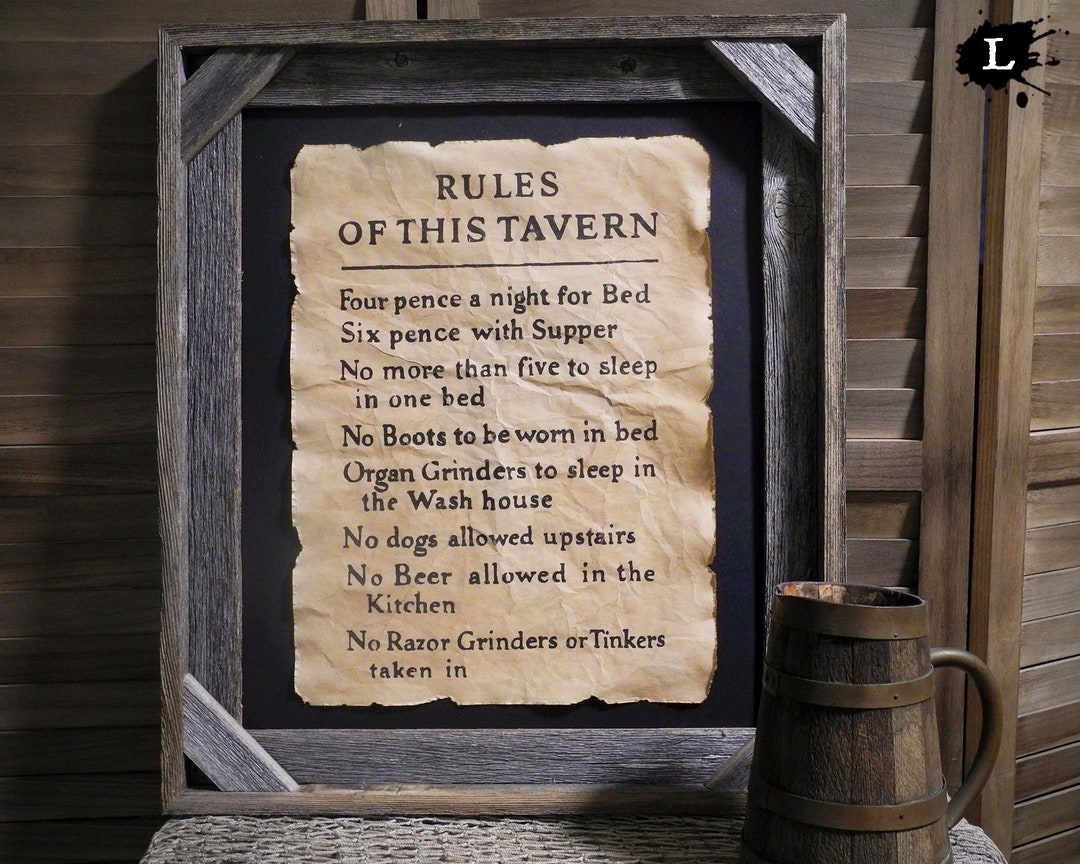 L
RULES
OF THIS TAVERN
Four pence a night for Bed
Six pence with Supper
No more than five to sleep
in one bed
No Boots to be worn in bed
Organ Grinders to sleep in
the Wash house
No dogs allowed upstairs
No Beer allowed in the
Kitchen
No Razor Grinders or Tinkers
taken in